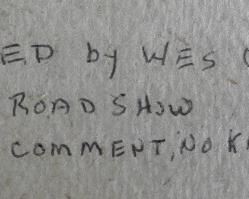 ED by WES (
ROAD SHOW
COMMENT, NO K